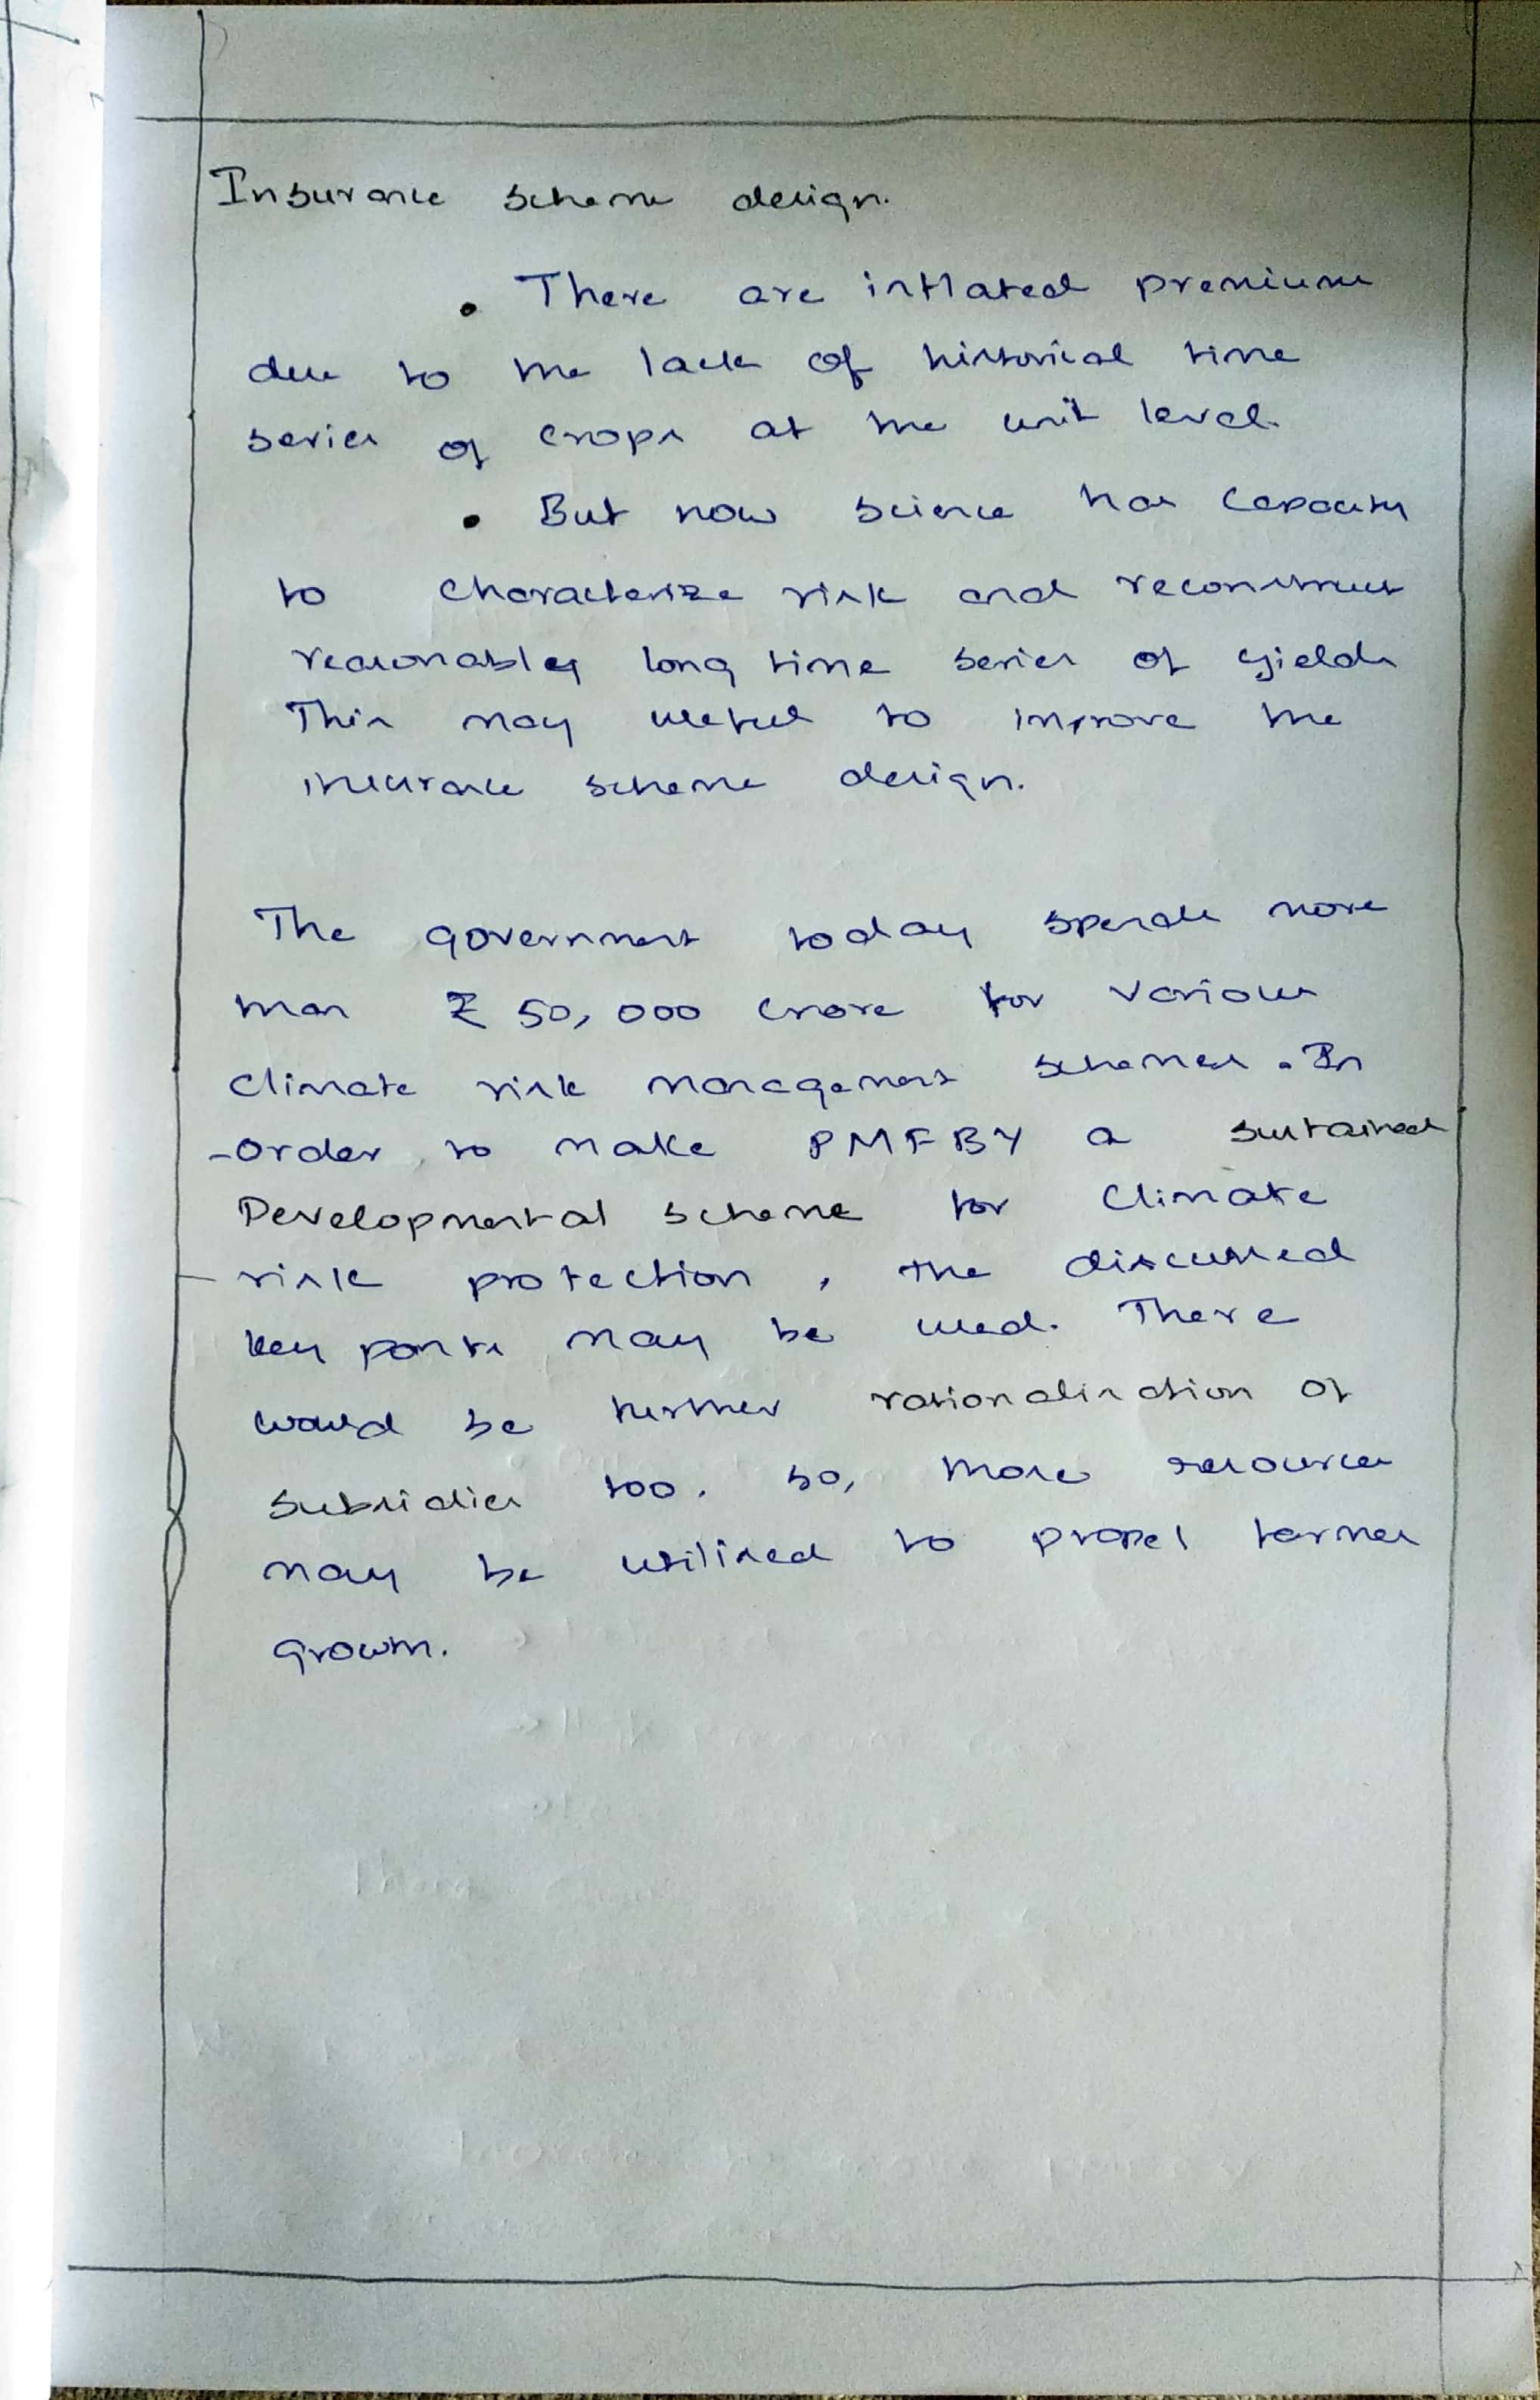 Insurance scheme design.
• There are inflated premium
due to the lack of historical time
series of crops at the unit level.
• But now science has capacity
to characterize risk and reconstruct
reasonabley long time series of yields
This may useful to improve the
insurance scheme design.
The government today spends more
than ₹ 50,000 crore for various
climate risk management schemes. In
order to make PMFBY a sustained
Developmental scheme for climate
risk protection, the discussed
key points may be used. There
would be further rationalisation of
subsidies too. So, more resources
may be utilised to propel farmer
growth.